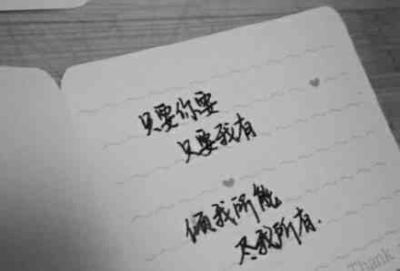 只要你要
只要我有
倾我所能
尽我所有.
Thank